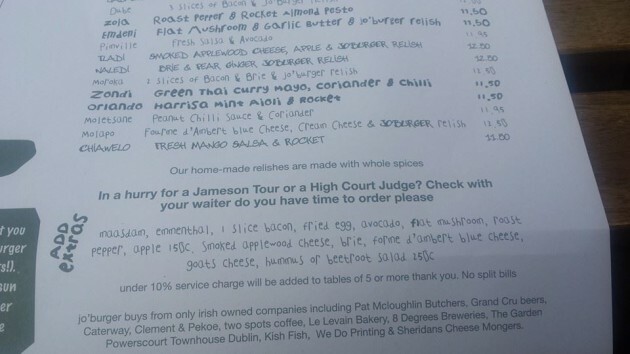 Dube 2 slices of Bacon &
zola Roast Pepper & Rocket Almond Pesto 11.50
Emdeni Flat Mushroom & Garlic Butter & jo'burger relish 11.50
Pimville Fresh Salsa & Avocado 11.95
TLADI SMOKED APPLEWOOD CHEESE, APPLE & JOBURGER RELISH 12.50
NALEDI BRIE & PEAR GINGER, JOBURGER RELISH 12.50
Moroka 2 slices of Bacon & Brie & jo'burger relish
Zondi Green Thai Curry Mayo, coriander & Chilli 11.50
Orlando Harrisa Mint Aioli & Rocket 11.50
Moletsane Peanut Chilli Sauce & Coriander 11.95
Molapo Fourme d'Ambert blue Cheese, Cream Cheese & JOBURGER relish
CHIAWELO FRESH MANGO SALSA & ROCKET
Our home-made relishes are made with whole spices
In a hurry for a Jameson Tour or a High Court Judge? Check with
your waiter do you have time to order please
ADD
extras
maasdam, emmenthal, 1 slice bacon, fried egg, avocado, flat mushroom, roast
pepper, apple 150c, smoked applewood cheese, brie, forme d'ambert blue cheese,
goats cheese, hummus or beetroot salad 250c
under 10% service charge will be added to tables of 5 or more thank you. No split bills
jo'burger buys from only irish owned companies including Pat Mcloughlin Butchers, Grand Cru beers,
Caterway, Clement & Pekoe, two spots coffee, Le Levain Bakery, 8 Degrees Breweries, The Garden
Powerscourt Townhouse Dublin, Kish Fish, We Do Printing & Sheridans Cheese Mongers.
t you
urger
s!).
sun
er
e